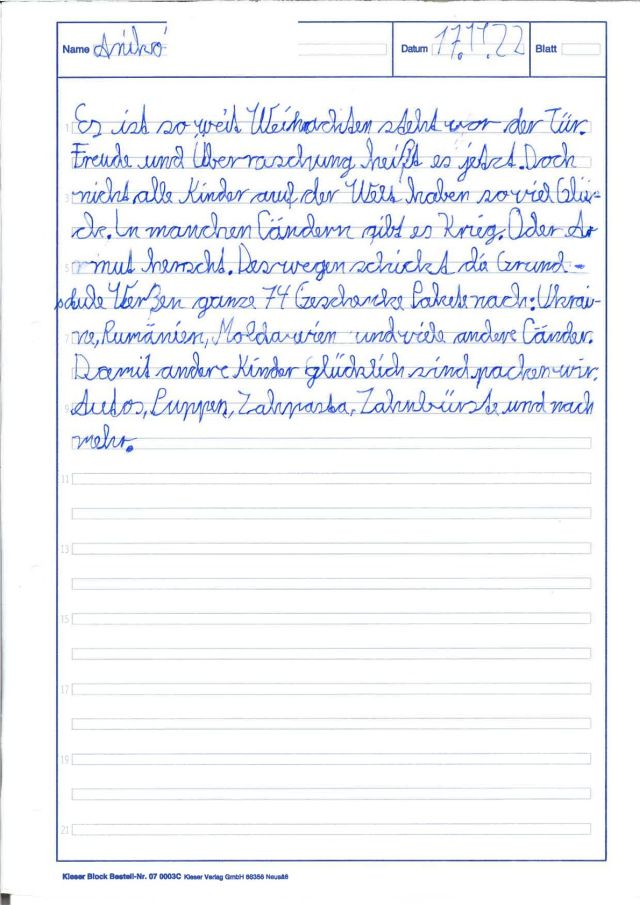 Name Anikó Datum 17.11.22 Blatt
1 Es ist so weit Weihnachten steht vor der Tür.
Freude und Überraschung heißt es jetzt. Doch
3 nicht alle Kinder auf der Welt haben so viel Glü-
ck. In manchen Ländern gibt es Krieg. Oder Ar
5 mut herscht. Deswegen schickt die Grund-
schule Werßen ganze 74 Geschencke Pakete nach: Ukrai-
7 ne, Rumänien, Moldawien und viele andere Länder.
Damit andere Kinder glücklich sind packen wir.
9 Autos, Puppen, Zahpasta, Zahnbürste und nach
mehr.
11
13
15
17
19
21
Kieser Block Bestell-Nr. 07 0003C Kieser Verlag GmbH 86356 Neusäß